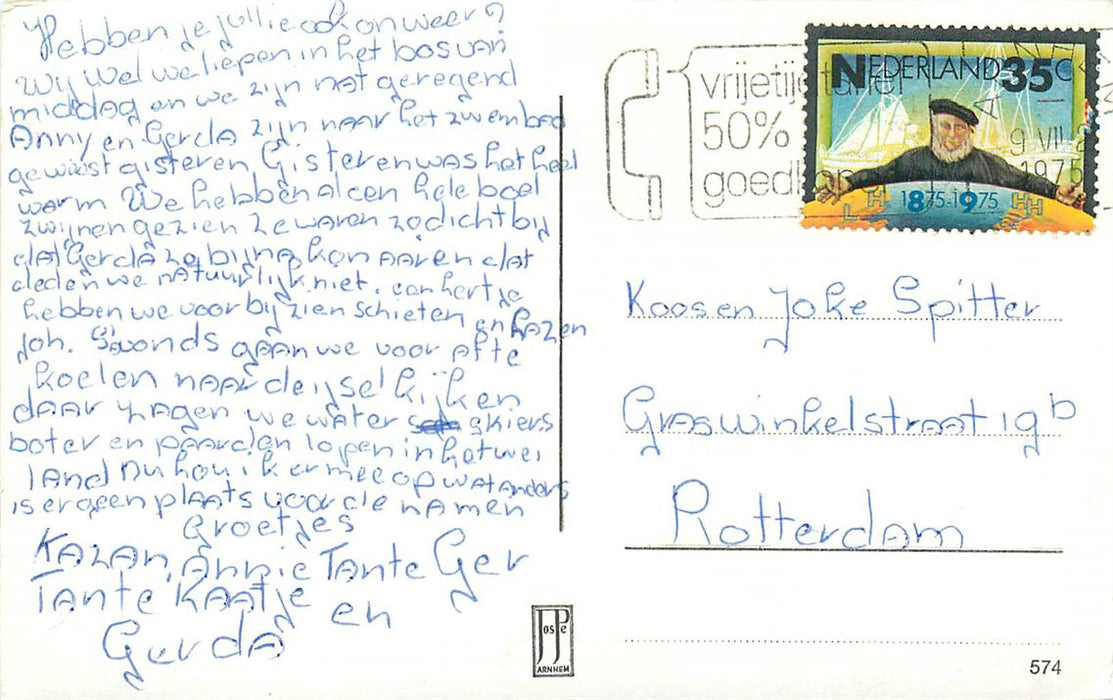 Hebben je jullie ook onweer?
Wij wel we liepen in het bos van
middag en we zijn nat geregend
Anny en Gerda zijn naar het zwembad
geweest gisteren Gisteren was het heel
warm We hebben al een hele boel
zwijnen gezien Ze waren zo dicht bij
dat Gerda ze bijna kon aaren dat
deden we natuurlijk niet. een hertje
hebben we voor bij zien schieten en hazen
Joh. S'avonds gaan we voor af te
koelen naar de ijsel kijken
daar zagen we water skiers
boten en paarden lopen in het wei
land Nu hou ik er mee op wat anders
is er geen plaats voor de namen
Groetjes
Kazan, Annie Tante Ger
Tante Kaatje en
Gerda
vrijetijdtarief
50%
goedkoper
NEDERLAND 35C
9 VII
1975
1875-1975
L H HH
Koos en Joke Spitter
Graswinkelstraat 19b
Rotterdam
JosPe
ARNHEM
574